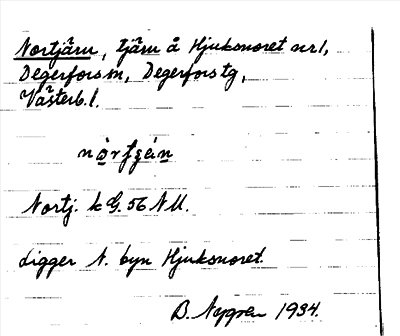 Nortjärn, tjärn å Hjuksnoret nr 1,
Degerfors sn, Degerfors tg,
Västerb. l.
Nortj. k G. 56 NU.
Ligger N. byn Hjuksnoret.
B. Nygren 1934.